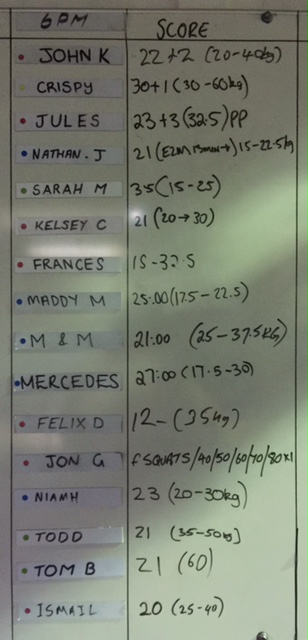 6PM SCORE
JOHN K 22+2 (20-40kg)
CRISPY 30+1 (30-60kg)
JULES 23+3 (32.5) PP
NATHAN.J 21 (E2M 15-22.5kg
SARAH M 35 (15-25)
KELSEY C 21 (20→30)
FRANCES 15-32.5
MADDY M 25:00 (17.5-22.5)
M & M 21:00 (25-37.5KG)
MERCEDES 27:00 (17.5-30)
FELIX D 12- (35kg)
JON G F SQUATS/40/50/60/70/80X1
NIAMH 23 (20-30kg)
TODD 21 (35-50kg]
TOM B 21 (60)
ISMAIL 20 (25-40)